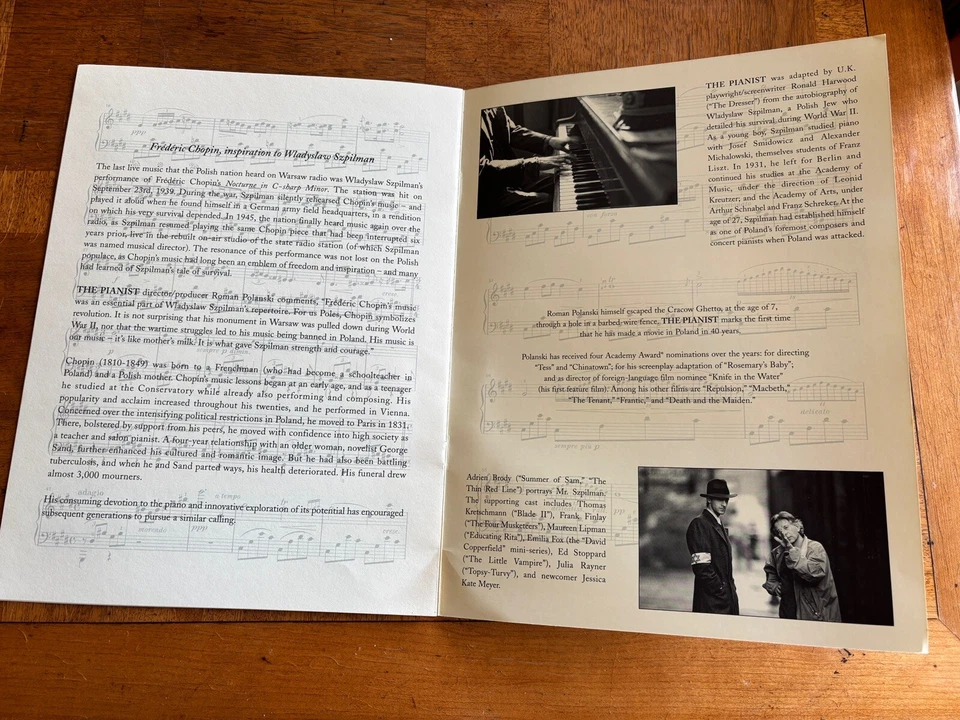 Frédéric Chopin, inspiration to Wladyslaw Szpilman
The last live music that the Polish nation heard on Warsaw radio was Wladyslaw Szpilman's
performance of Frédéric Chopin's Nocturne in C-sharp Minor. The station was hit on
September 23rd, 1939. During the war, Szpilman silently rehearsed Chopin's music – and
played it aloud when he found himself in a German army field headquarters, in a rendition
on which his very survival depended. In 1945, the nation finally heard music again over the
radio, as Szpilman resumed playing the same Chopin piece that had been interrupted six
years prior, live in the rebuilt on-air studio of the state radio station (of which Szpilman
was named musical director). The resonance of this performance was not lost on the Polish
populace, as Chopin's music had long been an emblem of freedom and inspiration – and many
had learned of Szpilman's tale of survival.
THE PIANIST director/producer Roman Polanski comments, "Frédéric Chopin's music
was an essential part of Wladyslaw Szpilman's repertoire. For us Poles, Chopin symbolizes
revolution. It is not surprising that his monument in Warsaw was pulled down during World
War II, nor that the wartime struggles led to his music being banned in Poland. His music is
our music – it's like mother's milk. It is what gave Szpilman strength and courage."
Chopin (1810-1849) was born to a Frenchman (who had become a schoolteacher in
Poland) and a Polish mother. Chopin's music lessons began at an early age, and as a teenager
he studied at the Conservatory while already also performing and composing. His
popularity and acclaim increased throughout his twenties, and he performed in Vienna.
Concerned over the intensifying political restrictions in Poland, he moved to Paris in 1831.
There, bolstered by support from his peers, he moved with confidence into high society as
a teacher and salon pianist. A four-year relationship with an older woman, novelist George
Sand, further enhanced his cultured and romantic image. But he had also been battling
tuberculosis, and when he and Sand parted ways, his health deteriorated. His funeral drew
almost 3,000 mourners.
adagio
a tempo
His consuming devotion to the piano and innovative exploration of its potential has encouraged
subsequent generations to pursue a similar calling.
THE PIANIST was adapted by U.K.
playwright/screenwriter Ronald Harwood
("The Dresser") from the autobiography of
Wladyslaw Szpilman, a Polish Jew who
detailed his survival during World War II.
As a young boy, Szpilman studied piano
with Josef Smidowicz and Alexander
Michalowski, themselves students of Franz
Liszt. In 1931, he left for Berlin and
continued his studies at the Academy of
Music, under the direction of Leonid
Kreutzer, and the Academy of Arts, under
Arthur Schnabel and Franz Schreker. At the
age of 27, Szpilman had established himself
as one of Poland's foremost composers and
concert pianists when Poland was attacked.
Roman Polanski himself escaped the Cracow Ghetto, at the age of 7,
through a hole in a barbed-wire fence. THE PIANIST marks the first time
that he has made a movie in Poland in 40 years.
Polanski has received four Academy Award® nominations over the years: for directing
"Tess" and "Chinatown"; for his screenplay adaptation of "Rosemary's Baby";
and as director of foreign-language film nominee "Knife in the Water"
(his first feature film). Among his other films are "Repulsion," "Macbeth,"
"The Tenant," "Frantic," and "Death and the Maiden."
sempre più p
Adrien Brody ("Summer of Sam," "The
Thin Red Line") portrays Mr. Szpilman.
The supporting cast includes Thomas
Kretschmann ("Blade II"), Frank Finlay
("The Four Musketeers"), Maureen Lipman
("Educating Rita"), Emilia Fox (the "David
Copperfield" mini-series), Ed Stoppard
("The Little Vampire"), Julia Rayner
("Topsy-Turvy"), and newcomer Jessica
Kate Meyer.